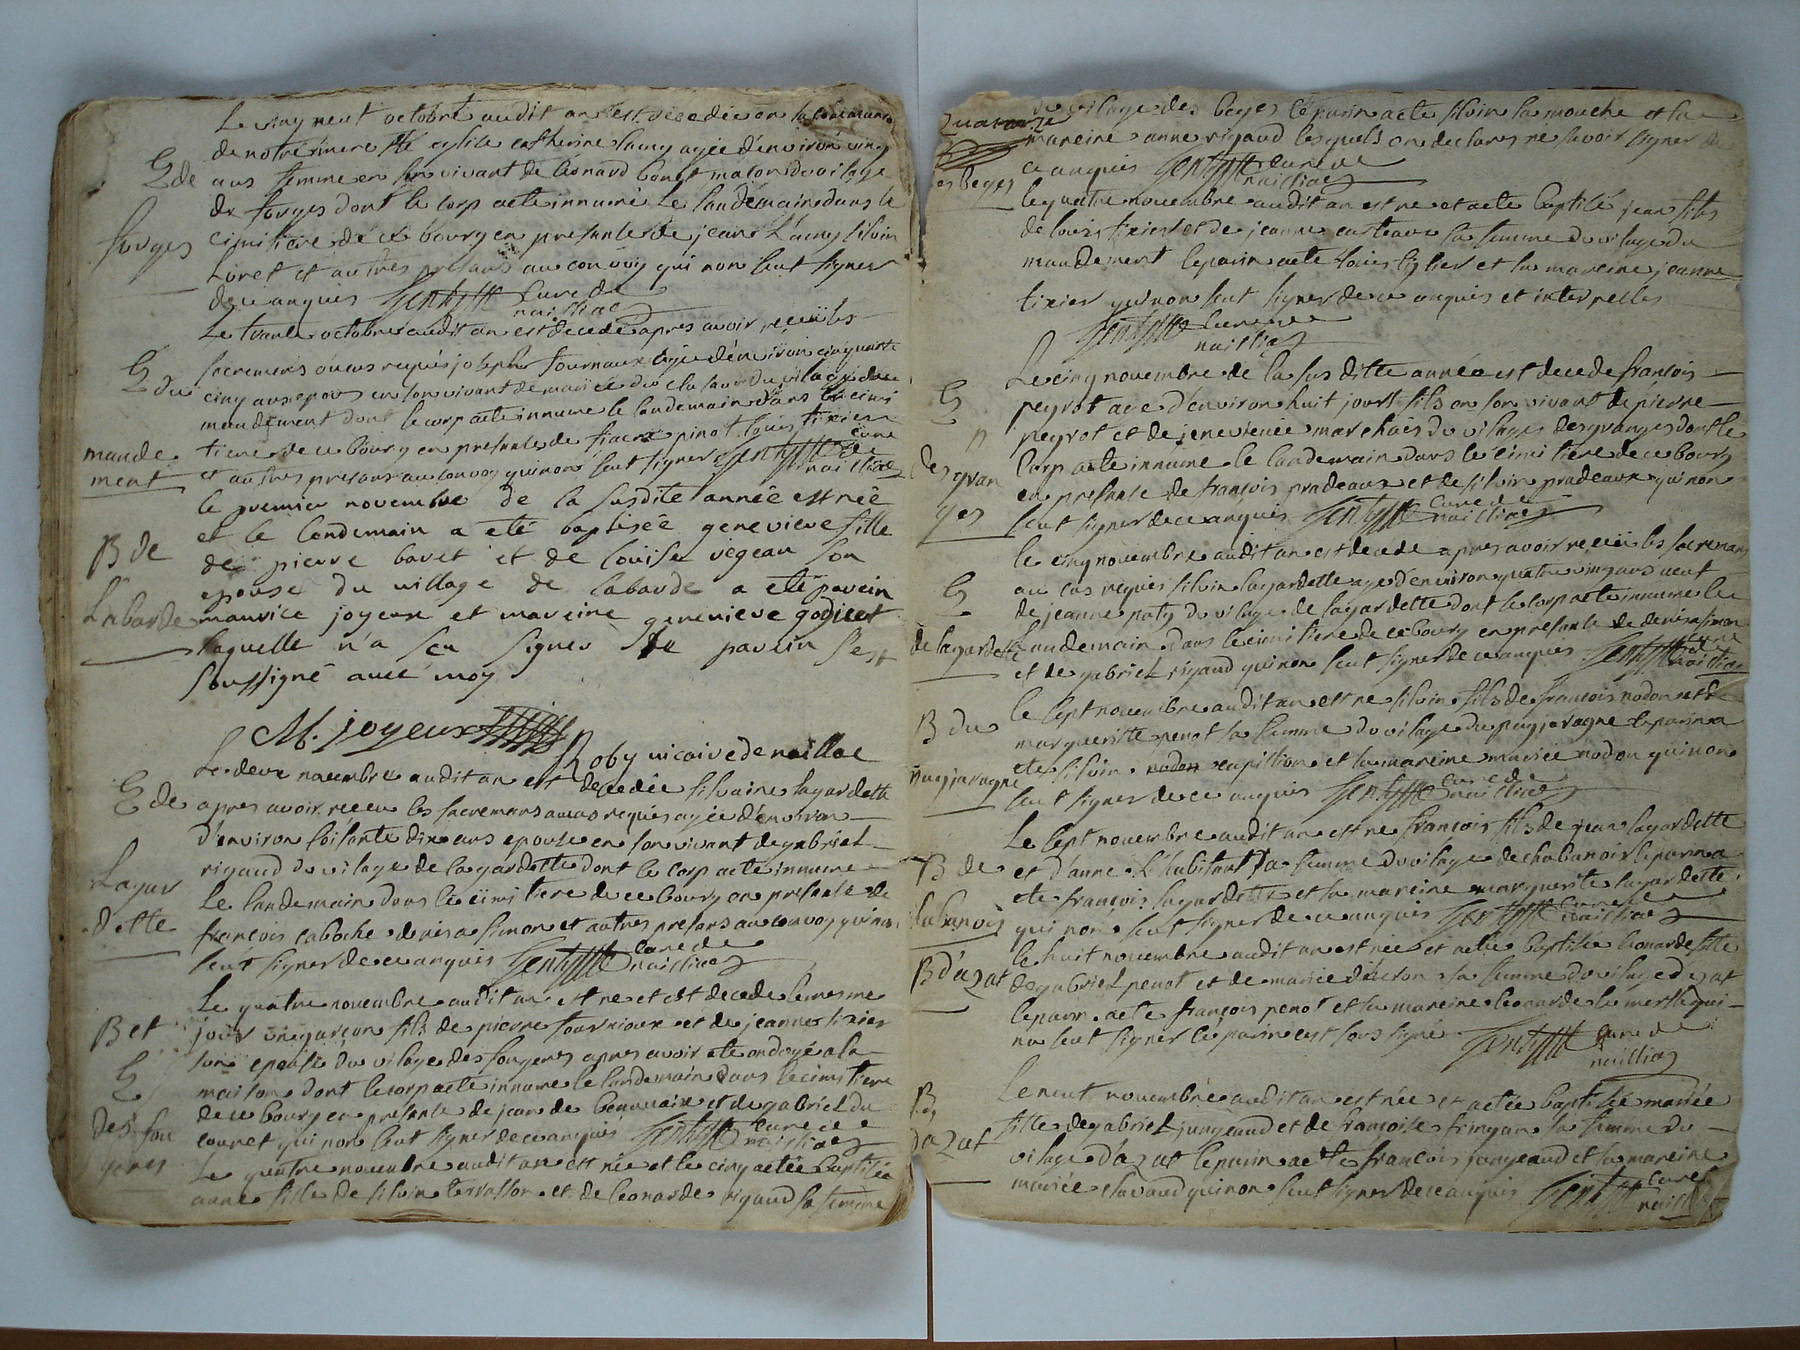 Le ving neuf octobre audit an est decedée en la communion
de notre mere Ste eglise catherine lamy agée d'environ ving
E de
ans femme en son vivant de leonard bonet maçon du vilage
de forges dont le corp a ete innumé le landemain dans le
forges
cimitiere de ce bourg en presante de jean l'amy silvin
loret et autres presans au convoy qui non seut signer
de ce anquis curé de
naillac
Le trante octobre audit an est decedé apres avoir reçeu les
sacremens ou cas requis joseph fournaux agé d'environ cinquante
E du
cinq ans epous en son vivant de du vilage du
mandement dont le corp a ete innumé le landemain dans le cimi
tiere de ce bourg en presante de pinot louis tixier
mande
ment
et autres presans au convoy qui non seut signer curé de naillac
le premier novembre de la susdite année est née
et le lendemain a eté baptisée genevieve fille
B de
de pierre bavet et de louise vegeau son
epouse du village de labarde a eté parein
Labarde
maurice joyeux et mareine genevieve godicet
laquelle n'a seu signer le parein s'est
soussigné avec moy
M. joyeux
Roby vicaire de naillac
Le deux novembre audit an est decedée silvaine lagardette
E de
apres avoir receu les sacremans au cas requis agée d'environ
d'environ soisante dix ans epouse en son vivant de gabriel
rigaud du vilage de lagardette dont le corp a ete innumé
Lagar
dette
Le landemain dans le cimitiere de ce bourg en presante de
françois caboche denis simon et autres presans au convoy qui non
seut signer de ce anquis curé de naillac
Le quatre novembre audit an est né et est decedé le mesme
B et
jour un garçon fils de pierre fournioux et de jeanne tixier
son epouse du vilage des fougeres apres avoir ete ondoyé a la
E
maison dont le corp a ete innumé le landemain dans le cimitiere
des fou
geres
de ce bourg en presante de jean de beauvais et de gabriel du
couret qui non seut signer de ce anquis curé de naillac
Le quatre novembre audit an est née et le cinq a etée baptisée
anne fille de silvin terrasson et de leonarde rigaud sa femme
quatorze
du vilage des beges le parin a ete silvin lamouche et la
mareine anne rigaud lesquels on declares ne savoir signer de
ce anquis curé de naillac
es beges
le quatre novembre audit an est né et a ete baptisé jean fils
de louis tixier et de jeanne sa femme du vilage du
mandement le parin a ete louis tixier et la mareine jeanne
tixier qui non seut signer de ce anquis et interpelles
curé de
naillac
Le cinq novembre de la susditte année est decedé françois
E
peyrot age d'environ huit jours fils en son vivant de pierre
peyrot et de jenevieve marchais du vilage des granges dont le
des gran
ges
corp a ete innumé le landemain dans le cimitiere de ce bourg
en presante de françois pradeaux et de silvin pradeaux qui non
seut signer de ce anquis curé de naillac
le cinq novembre audit an est decedé apres avoir reçeu les sacremans
E
au cas requis silvin lagardette agé d'environ quatre vingt ans
de jeanne naty du vilage de lagardette dont le corp a ete innumé le
de lagardette
Landemain dans le cimitiere de ce bourg en presante de denis simon
et de gabriel rigaud qui non seut signer de ce anquis curé de naillac
B du
le sept novembre audit an est né silvin fils de françois nadon et de
marguerite penot sa femme du vilage du puyjavagne le parin a
puyjaragne
ete silvin nadon capition et la mareine mariée nadon qui non
seut signer de ce anquis curé de naillac
Le sept novembre audit an est né françois fils de jean lagardette
B de
et d'anne l'habitant sa femme du vilage de chabanois le parin a
chabanois
ete françois lagardette et la mareine marguerite lagardette
qui non seut signer de ce anquis curé de naillac
le huit novembre audit an est née et a etée baptisée leonarde fille
B d'azat
de gabriel penot et de mariée sa femme du vilage d'azat
le parin a ete françois penot et la mareine leonarde lamerle qui
na seut signer le parin est sous signé curé de
naillac
B
Le neuf novembre audit an est née et a etée baptisée mariée
dazat
fille de gabriel jungeaud et de françoise fringan sa femme du
vilage d'azat le parin a ete françois jungeaud et la mareine
mariée chavaud qui non seut signer de ce anquis curé
naillac